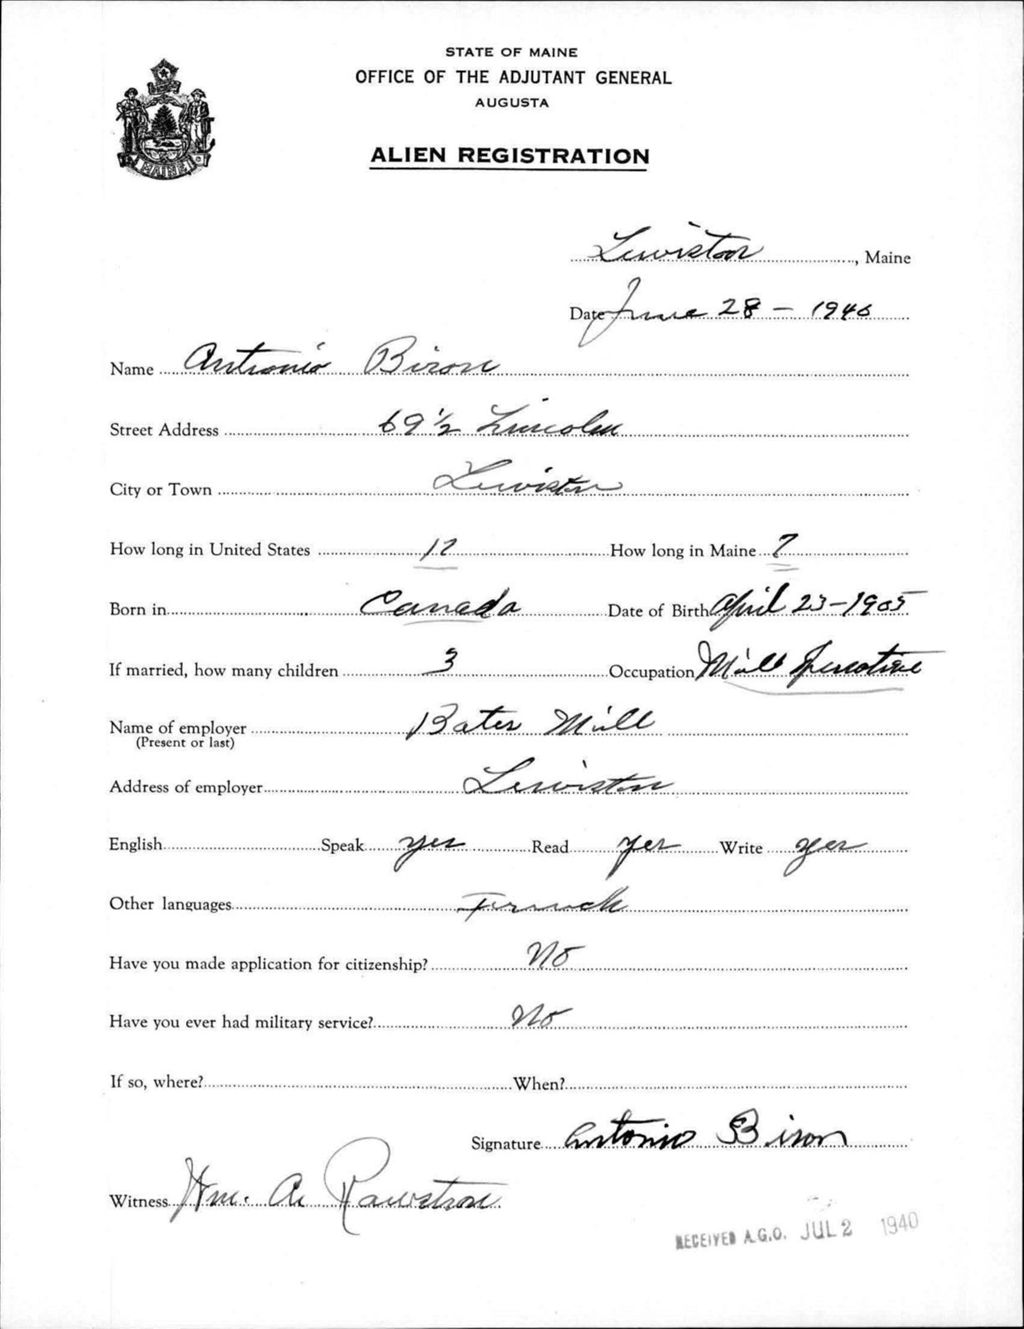 STATE OF MAINE
OFFICE OF THE ADJUTANT GENERAL
AUGUSTA
ALIEN REGISTRATION
MAINE
Lewiston, Maine
Date June 28 - 1940
Name Antonio Biron
Street Address 69 1/2 Lincoln
City or Town Lewiston
How long in United States 17 How long in Maine 7
Born in Canada Date of Birth April 23-1905
If married, how many children 3 Occupation Mill
Name of employer Bates Mill
(Present or last)
Address of employer Lewiston
English Speak yes Read yes Write yes
Other languages French
Have you made application for citizenship? No
Have you ever had military service? No
If so, where? When?
Signature Antonio Biron
Witness Wm. A. Rawstron
RECEIVED A.G.O. JUL 2 1940